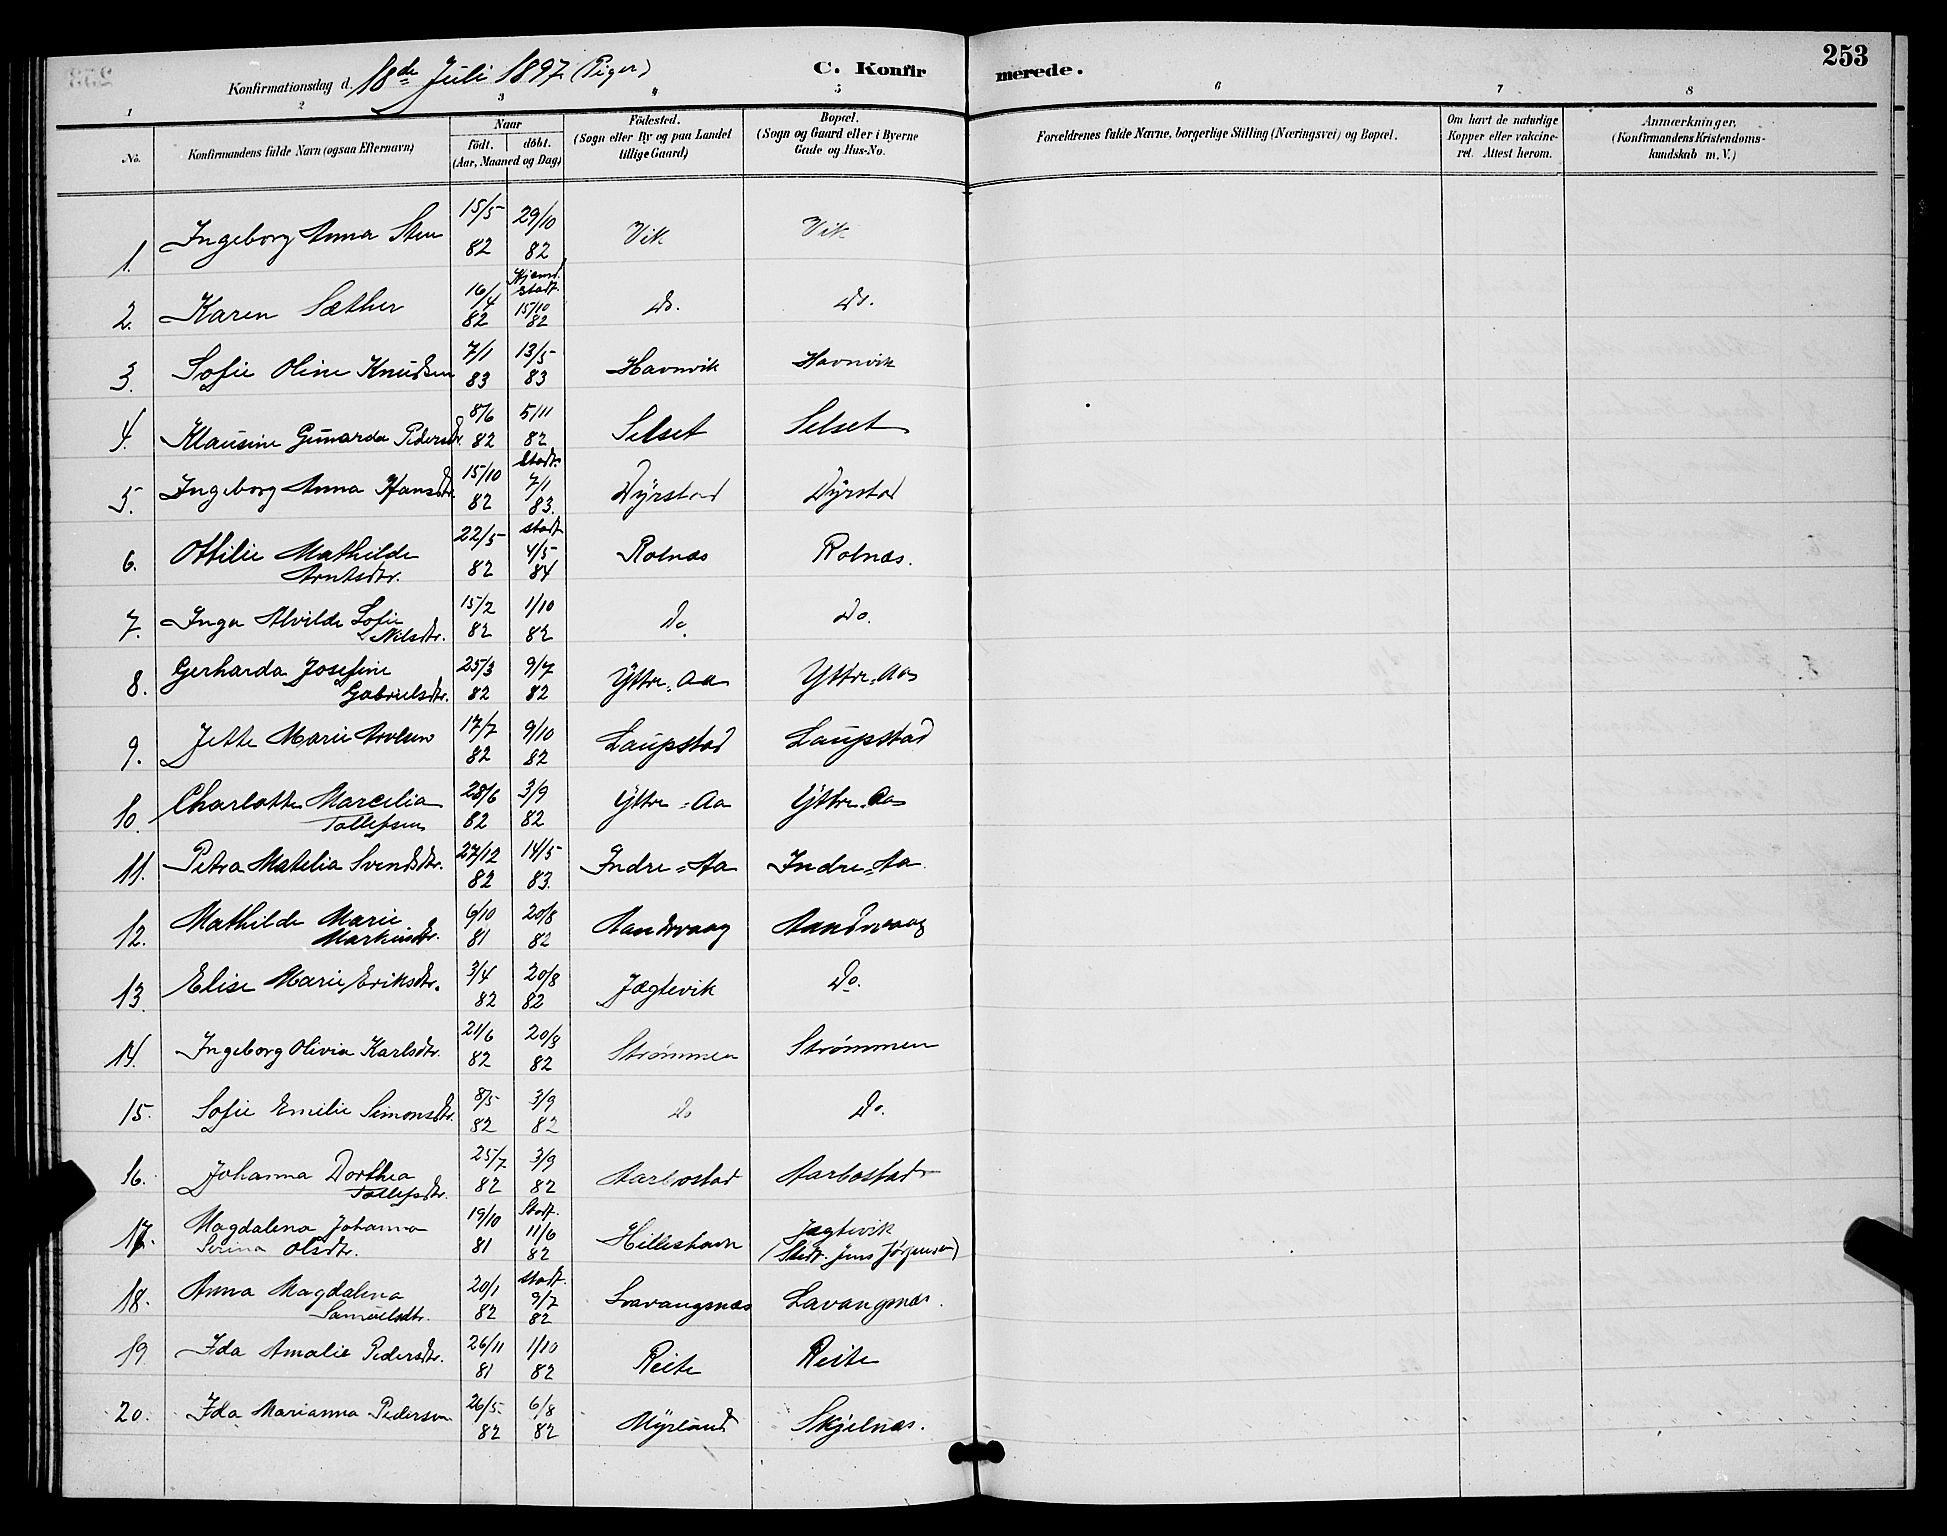 253
Konfirmationsdag d. 18de Juli 1897 (Piger)
C. Konfirmerede.
1 2 3 4 5 6 7 8
No. Konfirmandens fulde Navn (ogsaa Efternavn) Naar födt. döbt. (Aar, Maaned og Dag) Födested. (Sogn eller By og paa Landet tillige Gaard) Bopæl. (Sogn og Gaard eller i Byerne Gade og Hus-No. Forældrenes fulde Navne, borgerlige Stilling (Næringsvei) og Bopæl. Om havt de naturlige Kopper eller vakcineret. Attest herom. Anmærkninger, (Konfirmandens Kristendomskundskab m. V.)
1. Ingeborg Anna Sten 15/5 82 29/10 82 Vik Vik
2. Karen Sæther 16/4 82 Hjemd. Stadf. 15/10 82 Do. Do.
3. Sofie Oline Knudsen 7/1 83 13/5 83 Havnvik Havnvik
4. Klausine Gunarda Pedersdtr. 8/6 82 5/11 82 Selset Selset
5. Ingeborg Anna Hansdtr. 15/10 82 Stadf. 7/1 83. Dyrstad Dyrstad
6. Ottilie Mathilde Arntsdtr. 22/5 82 Stadf. 4/5 84 Rolnæs Rolnæs.
7. Inga Alvilde Sofie Nilsdtr. 15/2 82 1/10 82 Do Do.
8. Gerharda Josefine Gabrielsdtr. 25/3 82 9/7 82 Yttre-Aa Yttre-Aa
9. Jette Marie 17/7 82 9/10 82 Laupstad Laupstad
10. Charlotte Marcelia Tollefsen 28/6 82 3/9 82 Yttre-Aa Yttre-Aa
11. Petra Matelia Svendsdtr. 27/12 82 14/5 83. Indre-Aa Indre-Aa
12. Mathilde Marie Martinsdtr. 6/10 81 20/8 82 Aandvaag Aandvaag
13. Elise Marie Eriksdtr. 3/4 82 20/8 82 Jægtevik Do.
14. Ingeborg Olivia Karlsdtr. 21/6 82 20/8 82 Strømmen Strømmen
15. Sofie Emilie Simonsdtr. 8/5 82 3/9 82 Do Do.
16. Johanna Dorthea Tollefsdtr. 25/7 82 3/9 82 Aarbostad Aarbostad
17. Magdalena Johanna Serina Olsdtr. 19/10 81 Stadf. 11/6 82 Hilleshavn Jægtevik (Stedf. Jens Jørgensen)
18. Anna Magdalena Samuelsdtr. 20/1 82 Stadf. 9/7 82 Lavangsnæs Lavangsnæs.
19. Ida Amalie Pedersdtr. 26/11 81 1/10 82 Reite Reite
20. Ida Marianna Pedersen 26/5 82 6/8 82 Myrland Skjelnæs.